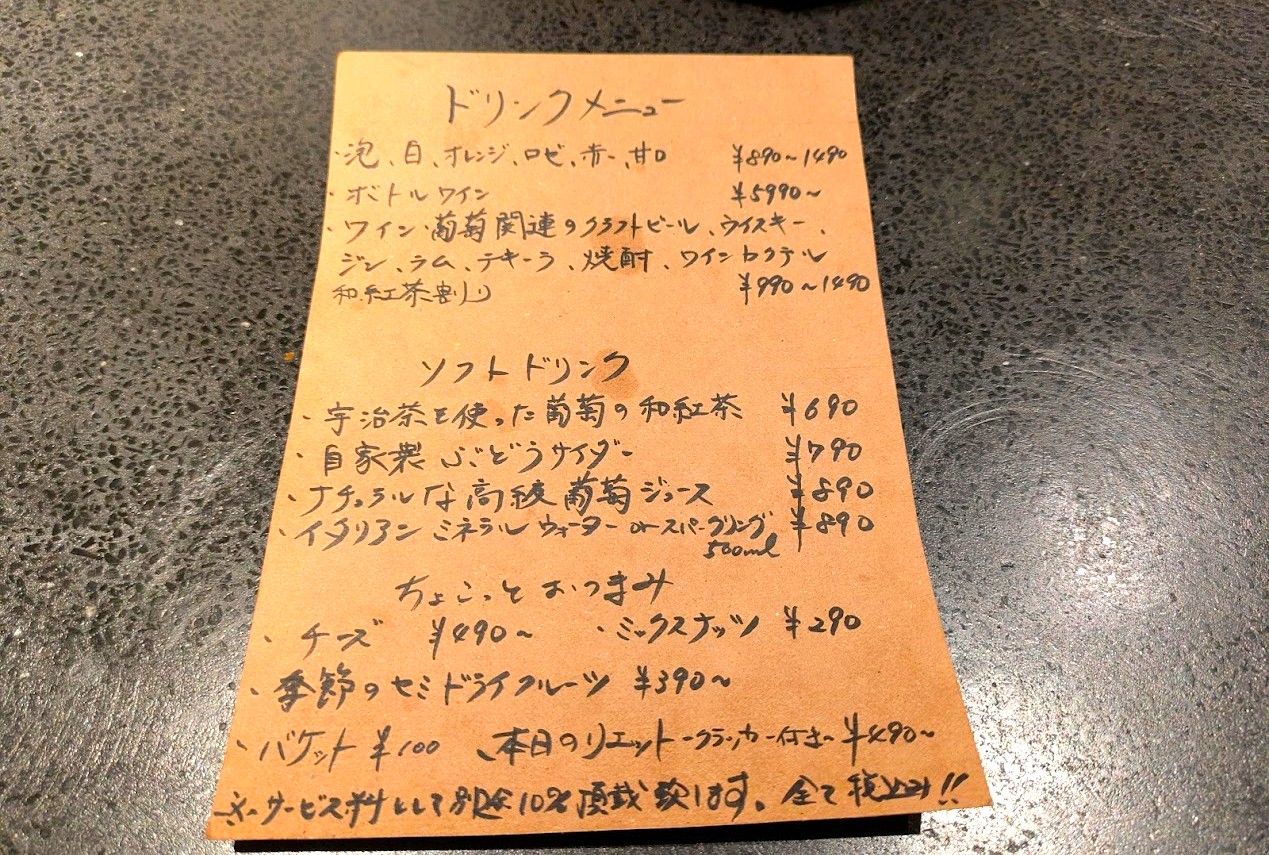 ドリンクメニュー
・泡、白、オレンジ、ロゼ、赤、甘口 ¥890~1490
・ボトルワイン ¥5990~
・ワイン・葡萄関連のクラフトビール、ウイスキー、
ジン、ラム、テキーラ、焼酎、ワインカクテル
和紅茶割り ¥990~1490
ソフトドリンク
・宇治茶を使った葡萄の和紅茶 ¥690
・自家製ぶどうサイダー ¥790
・ナチュラルな高級葡萄ジュース ¥890
・イタリアンミネラルウォーター or スパークリング ¥890
500ml
ちょこっとおつまみ
・チーズ ¥490~ ・ミックスナッツ ¥290
・季節のセミドライフルーツ ¥390~
・バケット ¥100 、本日のリエットークラッカー付きー ¥490~
※サービス料として別途10%頂戴致します。全て税込み!!